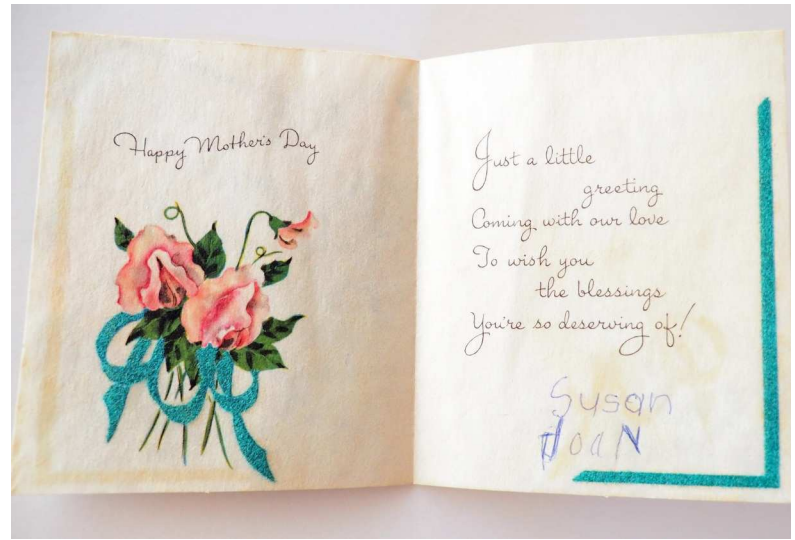 Happy Mother's Day
Just a little
greeting
Coming with our love
To wish you
the blessings
You're so deserving of!
Susan
JoaN